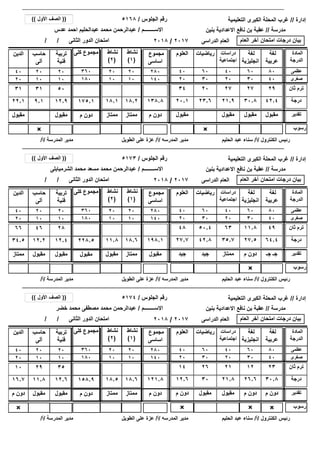 إدارة // غرب المحلة الكبرى التعليمية رقم الجلوس / ٥١٦٨ (( الصف الأول ))
مدرسة // عقبة بن نافع الاعدادية بنين الاســـــم / عبدالرحمن عبدالحليم احمد عدس
بيان درجات امتحان أخر العام العام الدراسي ٢٠١٧ / ٢٠١٨ امتحان الدور الثاني / /
المادة لغة عربية لغة انجليزية دراسات اجتماعية رياضيات العلوم مجموع اساسى نشاط (١) نشاط (٢) مجموع كلى تربية فنية حاسب آلى الدين
الدرجة
عظمى ٨٠ ٦٠ ٤٠ ٦٠ ٤٠ ٢٨٠ ٢٠ ٢٠ ٣٦٠ ٢٠ ٢٠ ٤٠
صغرى ٤٠ ٣٠ ٢٠ ٣٠ ٢٠ ١٤٠ ١٠ ١٠ ١٨٠ ١٠ ١٠ ٢٠
ترم ثان ٢٩ ٢٧ ٢٧ ٢٠ ٣٤ ٥٠ ٣١ ٣١
درجة ٤٢,٤ ٣٠,٨ ٢١,٩ ٢٣,٦ ٢٠,١ ١٣٨,٨ ١٨,١ ١٨,٢ ١٧٥,١ ١٢,٩ ٢,١ ٢٢,١
تقدير مقبول مقبول مقبول مقبول دون م ممتاز ممتاز دون م مقبول مقبول مقبول
رسوب × ×
رئيس الكنترول // سناء عبد الحليم مدرسة // عزة على الطويل مدير المدرسة //
إدارة // غرب المحلة الكبرى التعليمية رقم الجلوس / ٥١٧٣ (( الصف الأول ))
مدرسة // عقبة بن نافع الاعدادية بنين الاســـــم / عبدالرحمن محمد مسعد محمد الشرمبابلى
بيان درجات امتحان أخر العام العام الدراسي ٢٠١٧ / ٢٠١٨ امتحان الدور الثاني / /
المادة لغة عربية لغة انجليزية دراسات اجتماعية رياضيات العلوم مجموع اساسى نشاط (١) نشاط (٢) مجموع كلى تربية فنية حاسب آلى الدين
الدرجة
عظمى ٨٠ ٦٠ ٤٠ ٦٠ ٤٠ ٢٨٠ ٢٠ ٢٠ ٣٦٠ ٢٠ ٢٠ ٤٠
صغرى ٤٠ ٣٠ ٢٠ ٣٠ ٢٠ ١٤٠ ١٠ ١٠ ١٨٠ ١٠ ١٠ ٢٠
ترم ثان ٤٩ ١١,٨ ٦٣ ٥٠,٤ ٤٨ ٢٨ ٤٦ ٦٦
درجة ٦٤,٤ ٢٧,٥ ٣٥,٧ ٤٢,٨ ٢٧,٧ ١٩٨,١ ١٨,٦ ١١,٨ ٢٢٨,٥ ١٢,٤ ١٢,٢ ٣٤,٥
تقدير جـ جـ دون م ممتاز جيد جيد مقبول ممتاز مقبول مقبول مقبول مقبول ممتاز
رسوب ×
رئيس الكنترول // سناء عبد الحليم مدرسة // عزة على الطويل مدير المدرسة //
إدارة // غرب المحلة الكبرى التعليمية رقم الجلوس / ٥١٧٤ (( الصف الأول ))
مدرسة // عقبة بن نافع الاعدادية بنين الاســـــم / عبدالرحمن محمد مصطفى محمد خضر
بيان درجات امتحان أخر العام العام الدراسي ٢٠١٧ / ٢٠١٨ امتحان الدور الثاني / /
المادة لغة عربية لغة انجليزية دراسات اجتماعية رياضيات العلوم مجموع اساسى نشاط (١) نشاط (٢) مجموع كلى تربية فنية حاسب آلى الدين
الدرجة
عظمى ٨٠ ٦٠ ٤٠ ٦٠ ٤٠ ٢٨٠ ٢٠ ٢٠ ٣٦٠ ٢٠ ٢٠ ٤٠
صغرى ٤٠ ٣٠ ٢٠ ٣٠ ٢٠ ١٤٠ ١٠ ١٠ ١٨٠ ١٠ ١٠ ٢٠
ترم ثان ٢٣ ١٢ ٢١ ٢٦ ١٤ ٣٥ ٢٩ ١٠
درجة ٣٠,٨ ٢٦,٦ ٢١,٨ ٣٠ ١٢,٦ ١٢١,٨ ١٨,٦ ١٨,٥ ١٥٨,٩ ١٢,٦ ١١,٨ ١٦,٧
تقدير دون م دون م مقبول مقبول دون م دون م ممتاز ممتاز دون م مقبول مقبول دون م
رسوب × × × ×
رئيس الكنترول // سناء عبد الحليم مدرسة // عزة على الطويل مدير المدرسة //